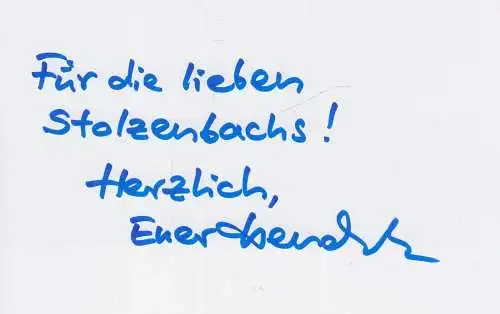 Für die lieben
Stolzenbachs!
Herzlich,
Euer